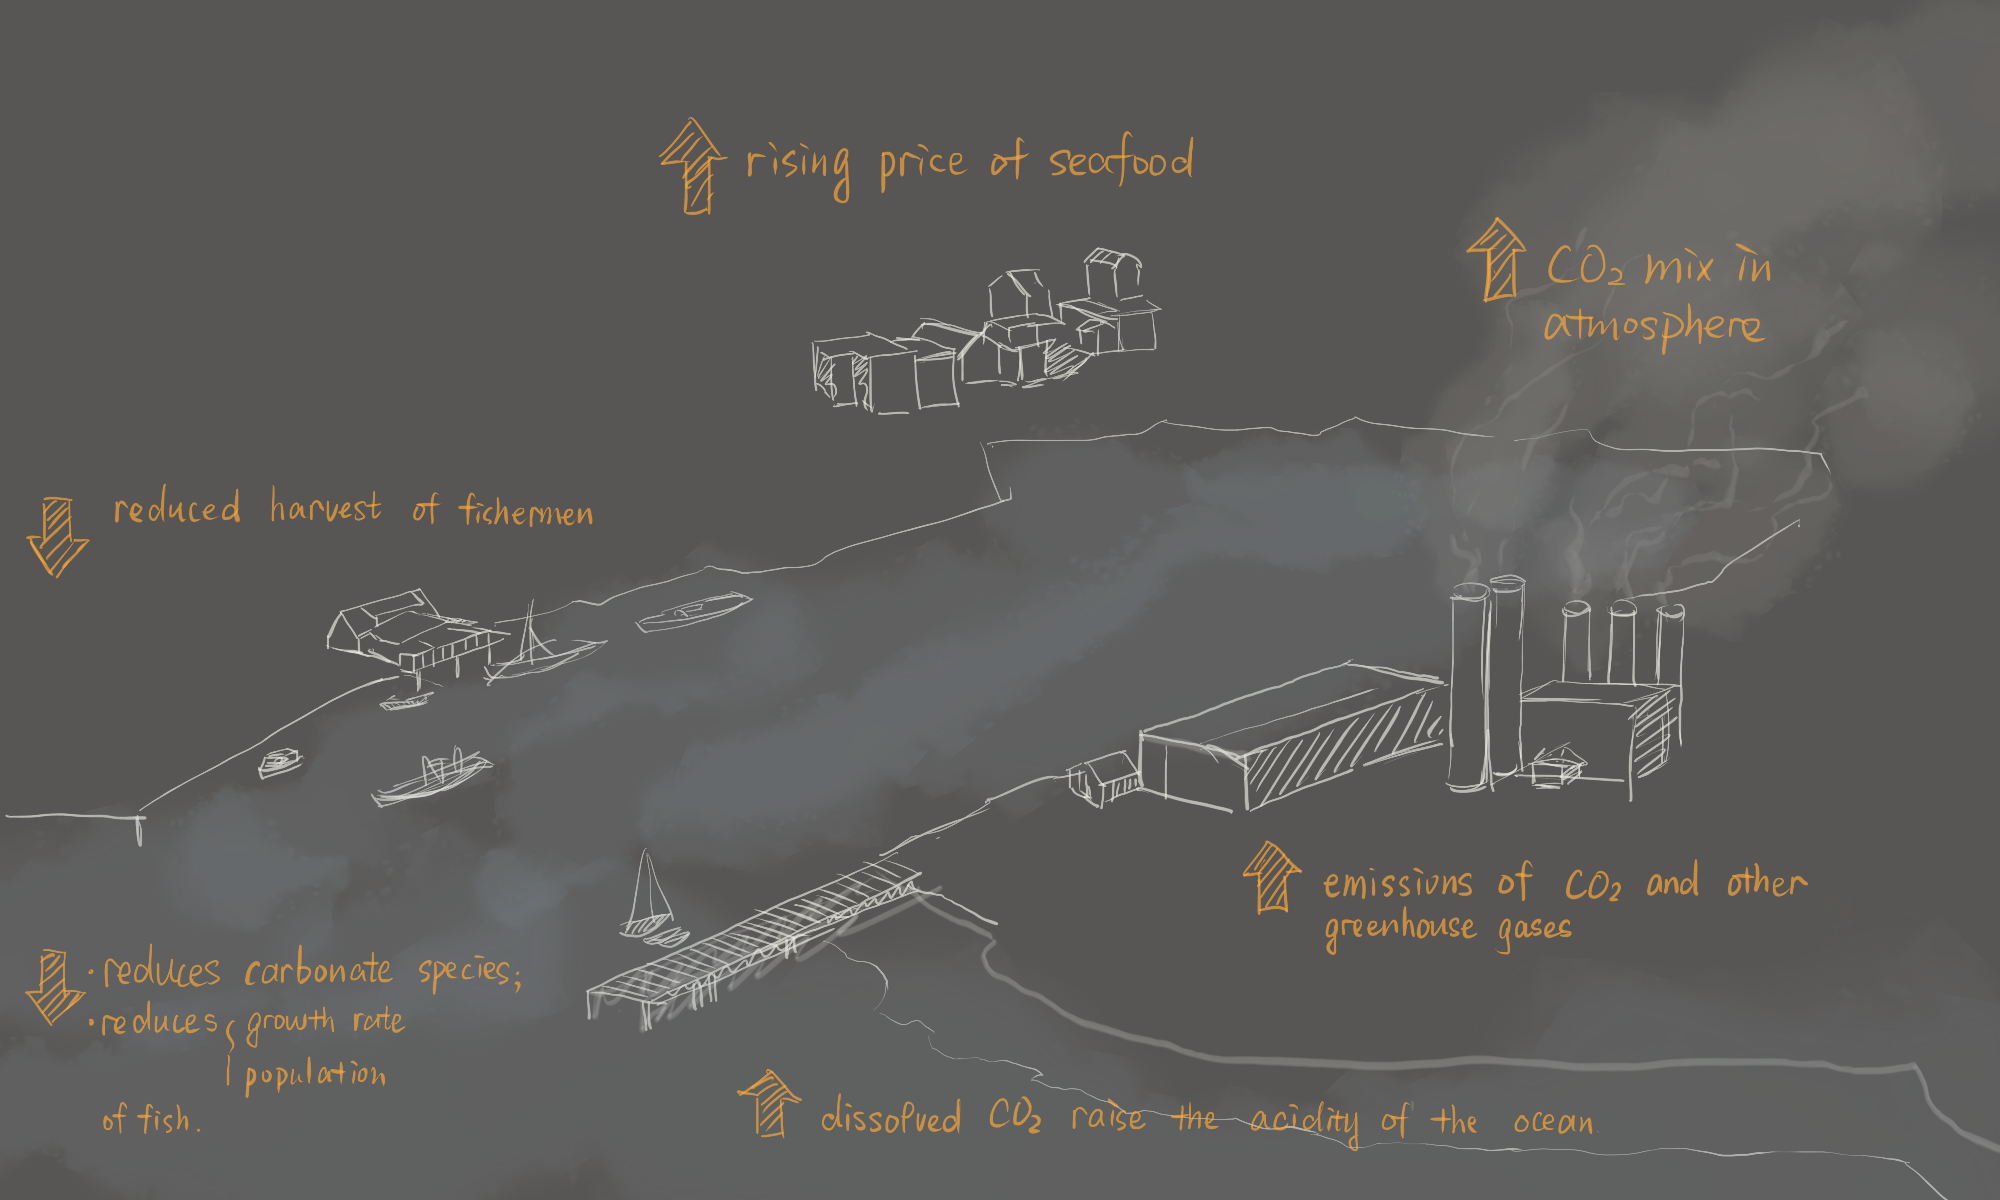 rising price of seafood
CO₂ mix in
atmosphere
reduced harvest of fishermen
emissions of CO₂ and other
greenhouse gases
· reduces carbonate species;
· reduces { growth rate
population
of fish.
dissolved CO₂ raise the acidity of the ocean